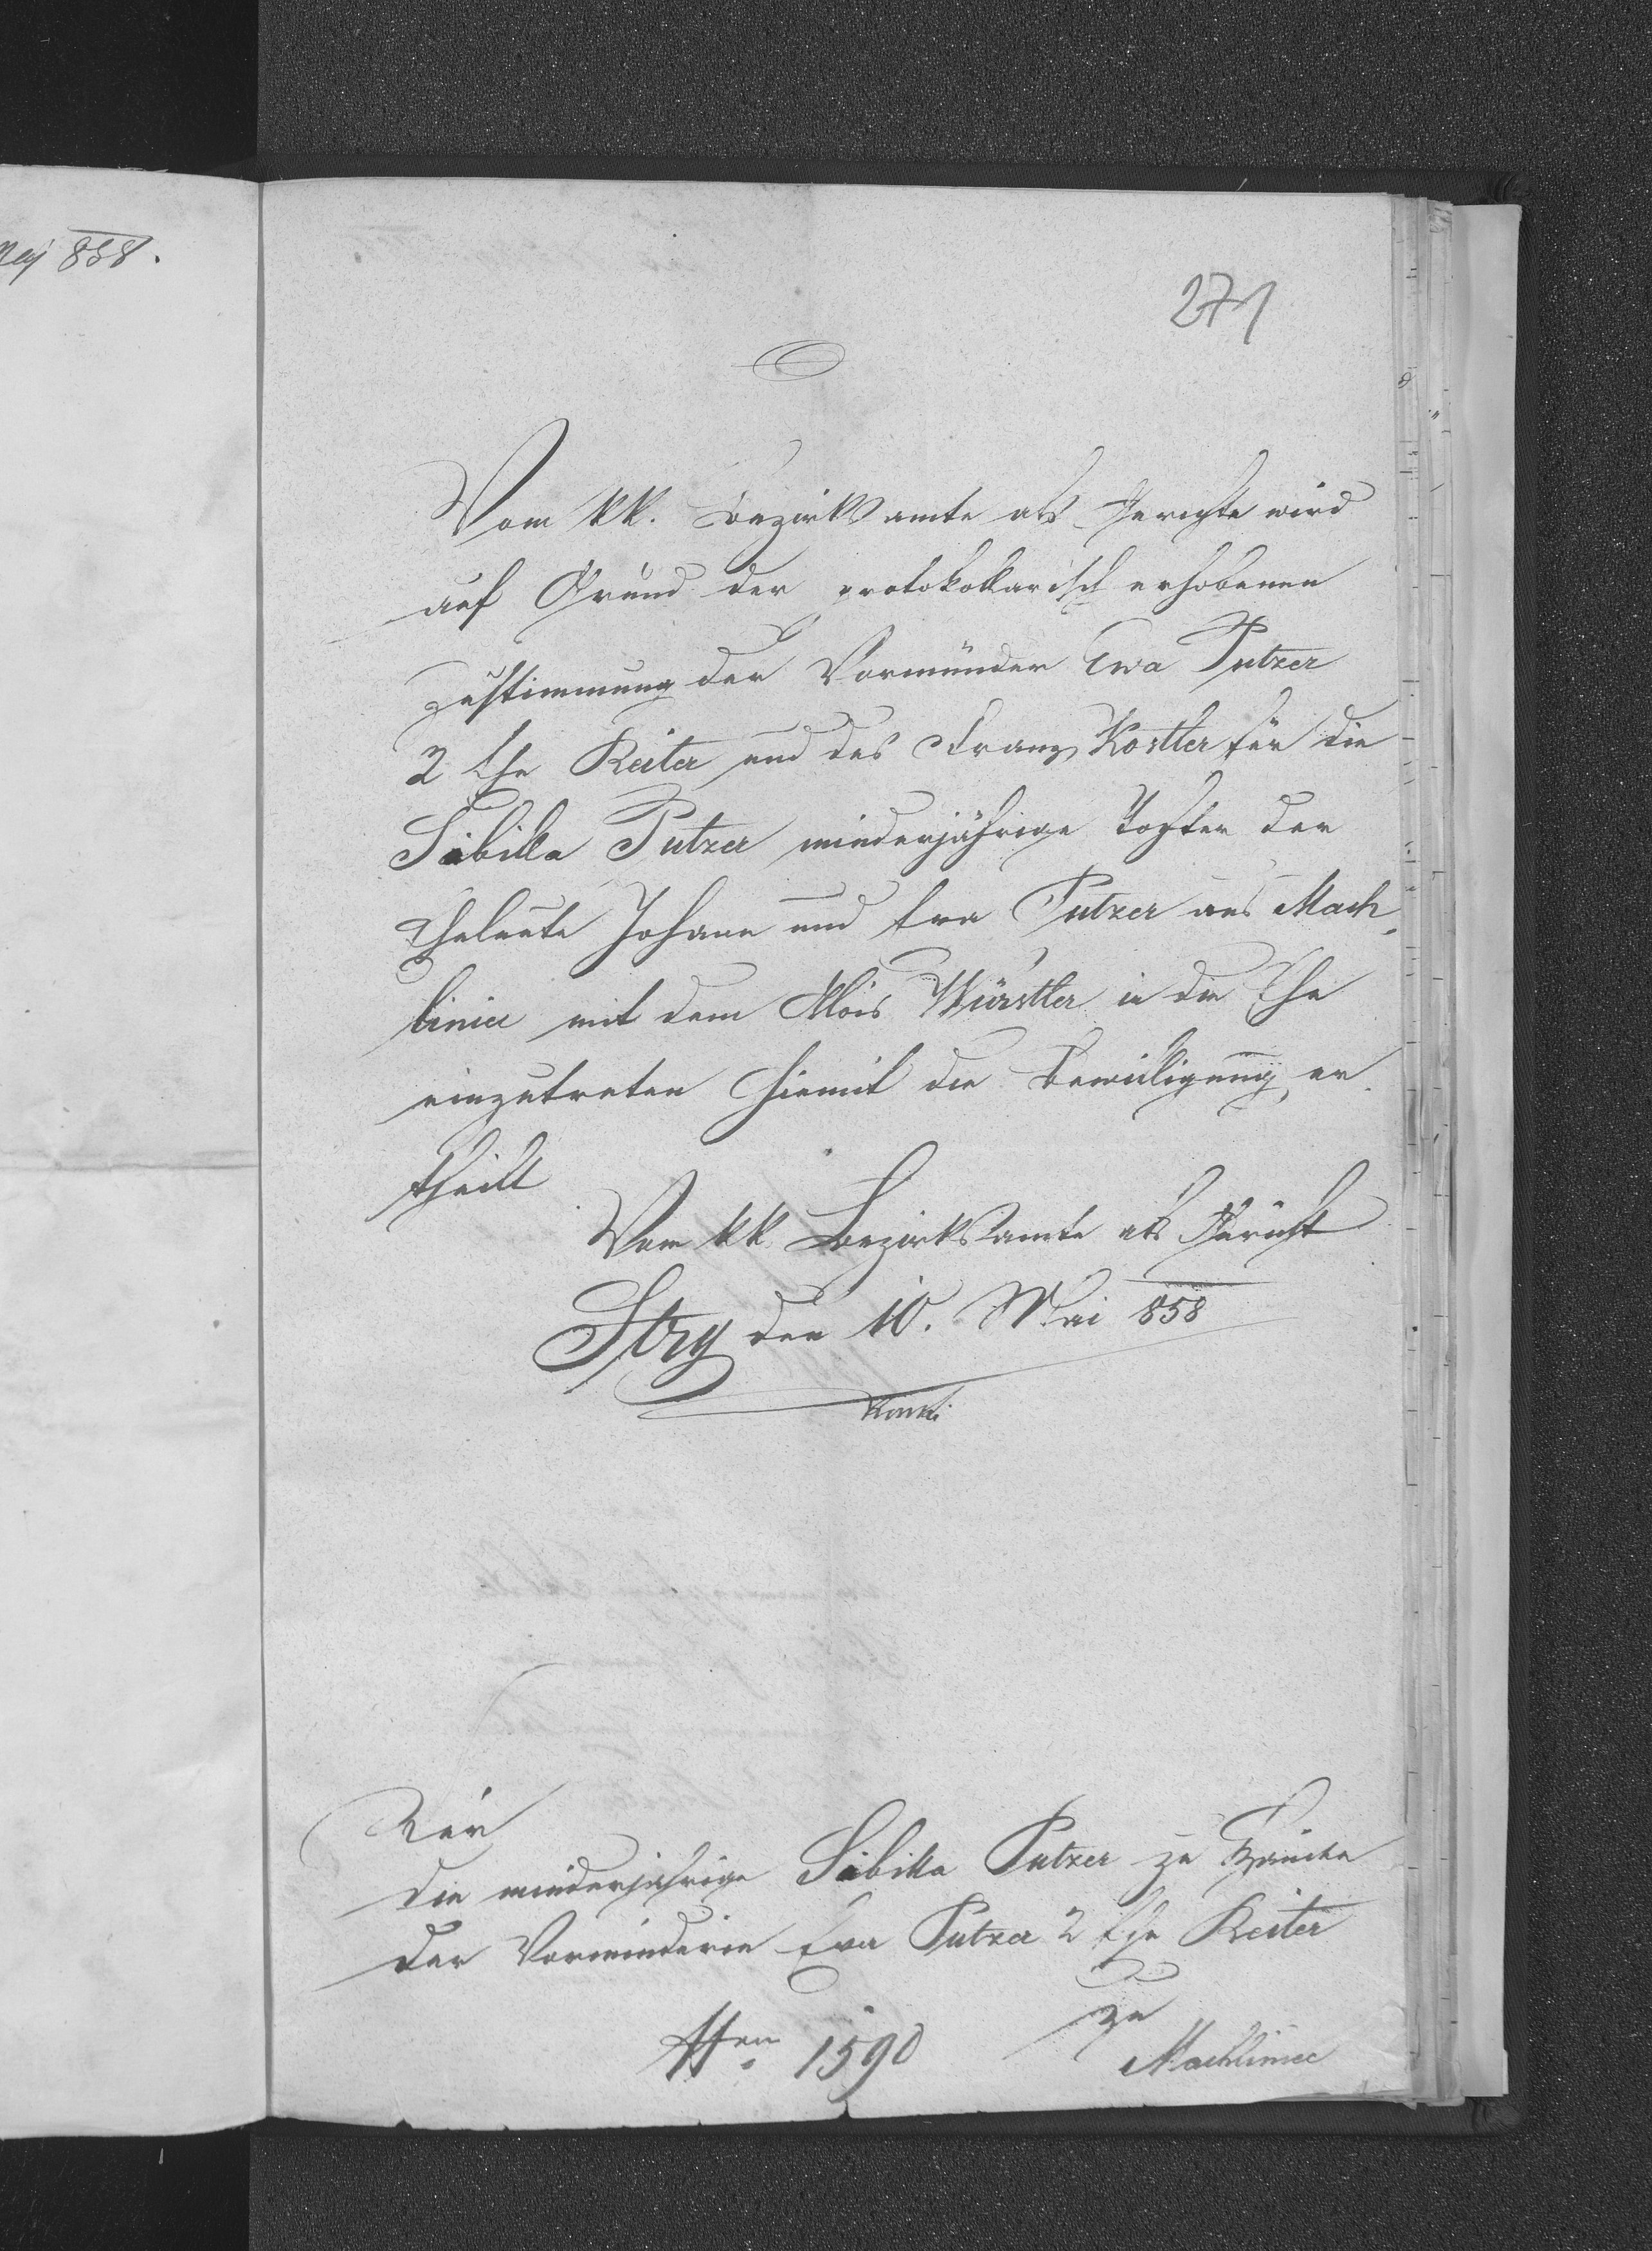 Maj 858.
271
Vom kk. Bezirksamte als Gerichte wird
auf Grund der protokollarisch erhobenen
Zustimmung der Vormünder Ewa Putzer
2 Ehe Reiter und des Franz Kostler für die
Sibilla Putzer minderjährige Tochter der
Eheleute Johann und Eva Putzer aus Mach
liniec mit dem Alois Würstler in die Ehe
einzutreten hiemit die Bewilligung er
theilt
Vom kk Bezirksamte als Gericht
Stry den 10. Mai 858
Für
die minderjährige Sibilla Putzer zu Handen
der Vormünderin Eva Putzer 2 Ehe Reiter
zu
1590
Machliniec